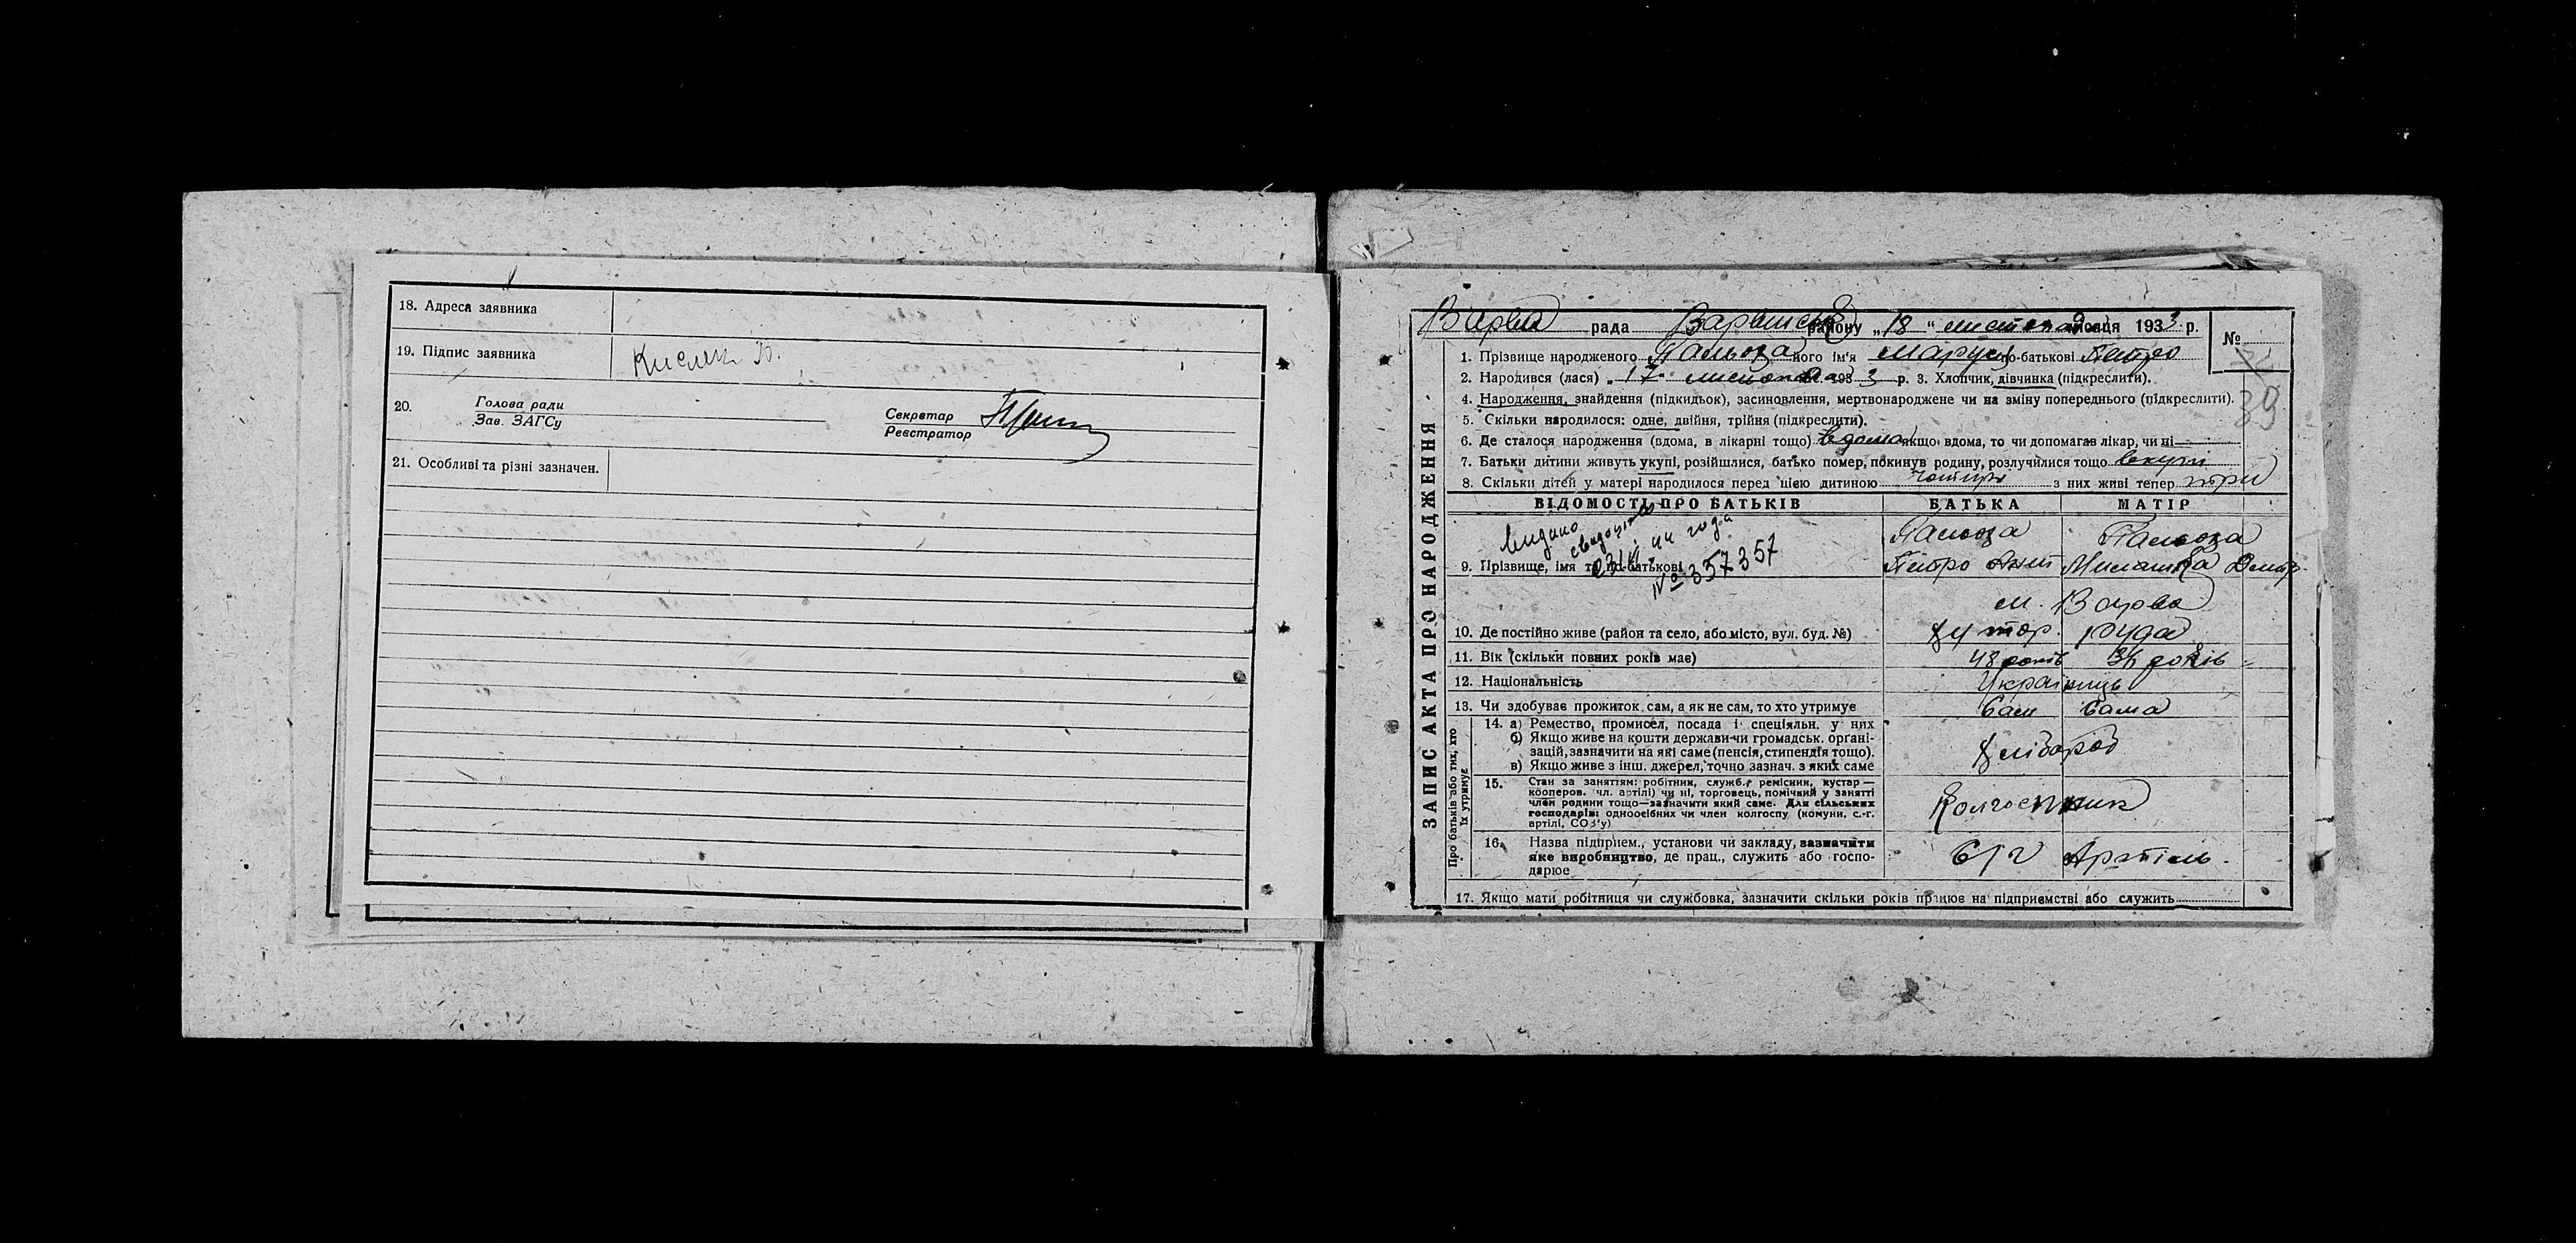 18. Адреса заявника
19. Підпис заявника
20. Голова ради
Зав. ЗАГСу
Секретар
Реєстратор
21. Особливі та різні зазначен.
ЗАПИС АКТА ПРО НАРОДЖЕННЯ
Варва рада району „18“ листопада місяця 1933 р.
№
39
1. Прізвище народженого Пальоза його ім'я Маруся по-батькові Петро
2. Народився (лася) „17“ листопада 1933 р. 3. Хлопчик, дівчинка (підкреслити).
4. Народження, знайдення (підкидьок), засиновлення, мертвонароджене чи на зміну попереднього (підкреслити).
5. Скільки народилося: одне, двійня, трійня (підкреслити).
6. Де сталося народження (вдома, в лікарні тощо) вдома якщо вдома, то чи допомагав лікар, чи ні
7. Батьки дитини живуть укупі, розійшлися, батько помер, покинув родину, розлучилися тощо вкупі
8. Скільки дітей у матері народилося перед цією дитиною чотири з них живі тепер три
ВІДОМОСТЬ ПРО БАТЬКІВ БАТЬКА МАТІР
Видано
44 года
№ 357357
Пальоза Пальоза
9. Прізвище, імя та по-батькові Петро Ант Дмитр.
м. Варва
10. Де постійно живе (район та село, або місто, вул. буд. №) хутор. Руда
11. Вік (скільки повних років має) 48 років 36 років
12. Національність Українець
13. Чи здобуває прожиток сам, а як не сам, то хто утримує Сам Сама
Про батьків або тих, хто їх утримує
14. а) Ремество, промисел, посада і спеціяльн. у них
б) Якщо живе на кошти держави чи громадськ. органі-
зацій, зазначити на які саме (пенсія, стипендія тощо).
в) Якщо живе з інш. джерел, точно зазнач. з яких саме
Хлібороб
15. Стан за заняттям: робітник, служб., ремісник, кустар —
кооперов. чл. артілі) чи ні, торговець, помічний у занятті
член родини тощо—зазначити який саме. Для сільських
господарів: одноосібних чи член колгоспу (комуни, с.-г.
артілі, СОЗ'у)
Колгоспник
16. Назва підприєм., установи чи закладу, зазначити
яке виробництво, де прац., служить або госпо-
дарює
С/г Артіль.
17. Якщо мати робітниця чи службовка, зазначити скільки років працює на підприємстві або служить